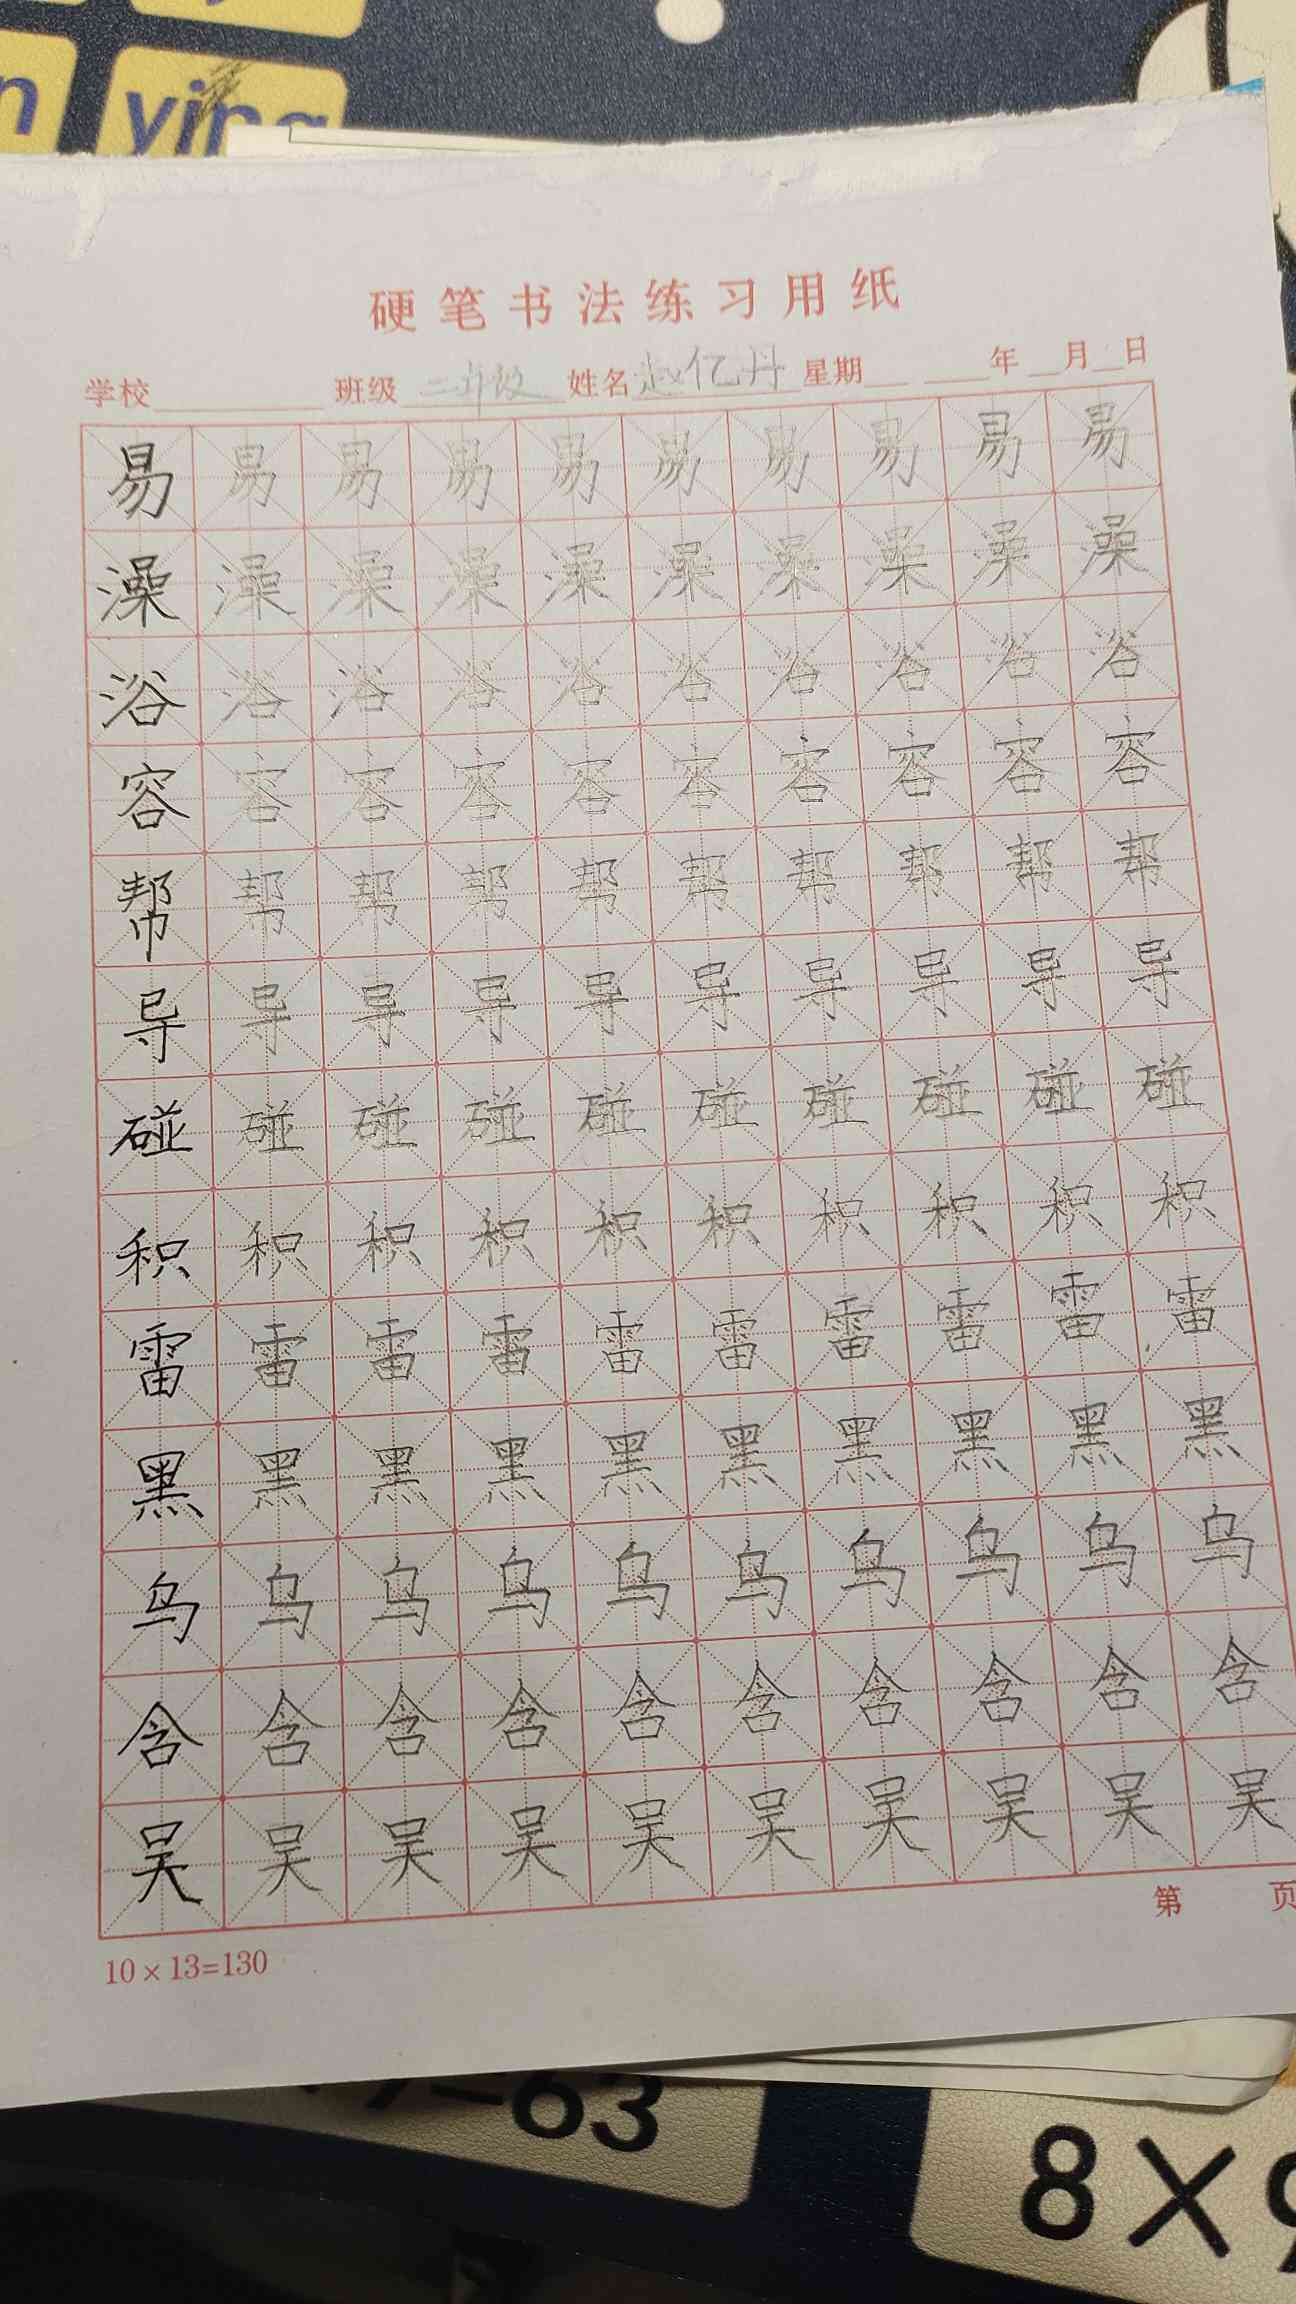 ying
硬笔书法练习用纸
学校 班级 二年级 姓名 赵亿丹 星期 年 月 日
易 易 易 易 易 易 易 易 易 易
澡 澡 澡 澡 澡 澡 澡 澡 澡 澡
浴 浴 浴 浴 浴 浴 浴 浴 浴 浴
容 容 容 容 容 容 容 容 容 容
帮 帮 帮 帮 帮 帮 帮 帮 帮 帮
导 导 导 导 导 导 导 导 导 导
碰 碰 碰 碰 碰 碰 碰 碰 碰 碰
积 积 积 积 积 积 积 积 积 积
雷 雷 雷 雷 雷 雷 雷 雷 雷 雷
黑 黑 黑 黑 黑 黑 黑 黑 黑 黑
乌 乌 乌 乌 乌 乌 乌 乌 乌 乌
含 含 含 含 含 含 含 含 含 含
吴 吴 吴 吴 吴 吴 吴 吴 吴 吴
第 页
10×13=130
=63
8×9